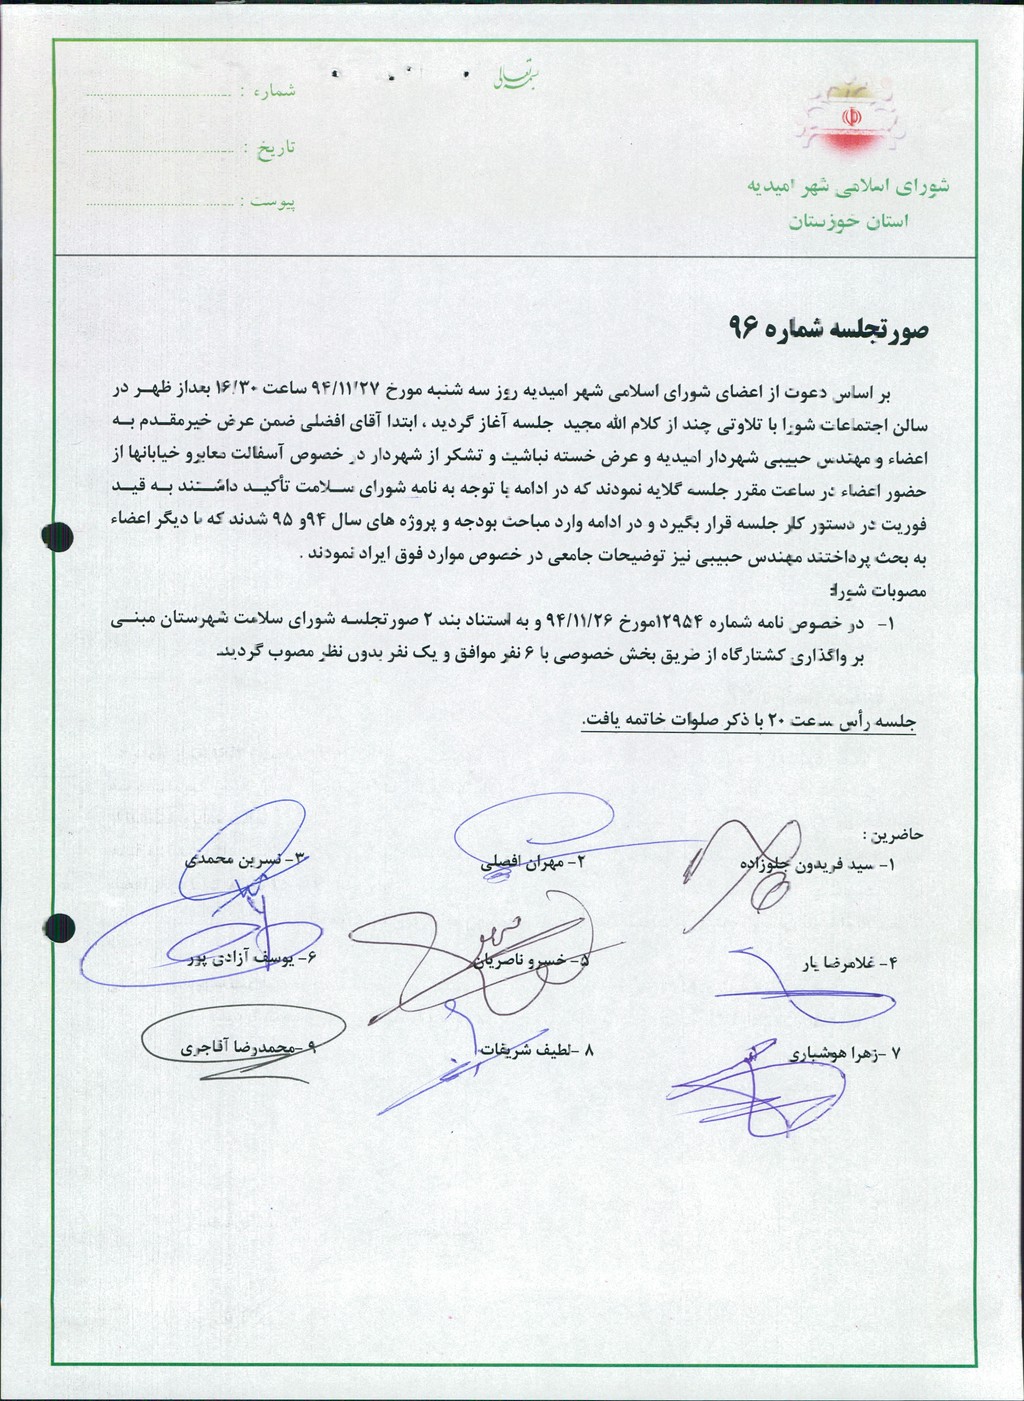 بسمه تعالی
شماره :
تاریخ :
پیوست :
شورای اسلامی شهر امیدیه
استان خوزستان
صورتجلسه شماره ۹۶
بر اساس دعوت از اعضای شورای اسلامی شهر امیدیه روز سه شنبه مورخ ۹۴/۱۱/۲۷ ساعت ۱۶/۳۰ بعداز ظهر در
سالن اجتماعات شورا با تلاوتی چند از کلام الله مجید جلسه آغاز گردید ، ابتدا آقای افضلی ضمن عرض خیرمقدم به
اعضاء و مهندس حبیبی شهردار امیدیه و عرض خسته نباشید و تشکر از شهردار در خصوص آسفالت معابرو خیابانها از
حضور اعضاء در ساعت مقرر جلسه گلایه نمودند که در ادامه با توجه به نامه شورای سلامت تأکید داشتند به قید
فوریت در دستور کار جلسه قرار بگیرد و در ادامه وارد مباحث بودجه و پروژه های سال ۹۴و ۹۵ شدند که با دیگر اعضاء
به بحث پرداختند مهندس حبیبی نیز توضیحات جامعی در خصوص موارد فوق ایراد نمودند .
مصوبات شورا:
۱- در خصوص نامه شماره ۱۲۹۵۴مورخ ۹۴/۱۱/۲۶ و به استناد بند ۲ صورتجلسه شورای سلامت شهرستان مبنی
بر واگذاری کشتارگاه از طریق بخش خصوصی با ۶ نفر موافق و یک نفر بدون نظر مصوب گردید.
جلسه رأس ساعت ۲۰ با ذکر صلوات خاتمه یافت.
حاضرین :
۱- سید فریدون جلوزاده ۲- مهران افضلی ۳- نسرین محمدی
۴- غلامرضا یار ۵- خسرو ناصریان ۶- یوسف آزادی پور
۷ -زهرا هوشیاری ۸ -لطیف شریفات ۹ -محمدرضا آقاجری